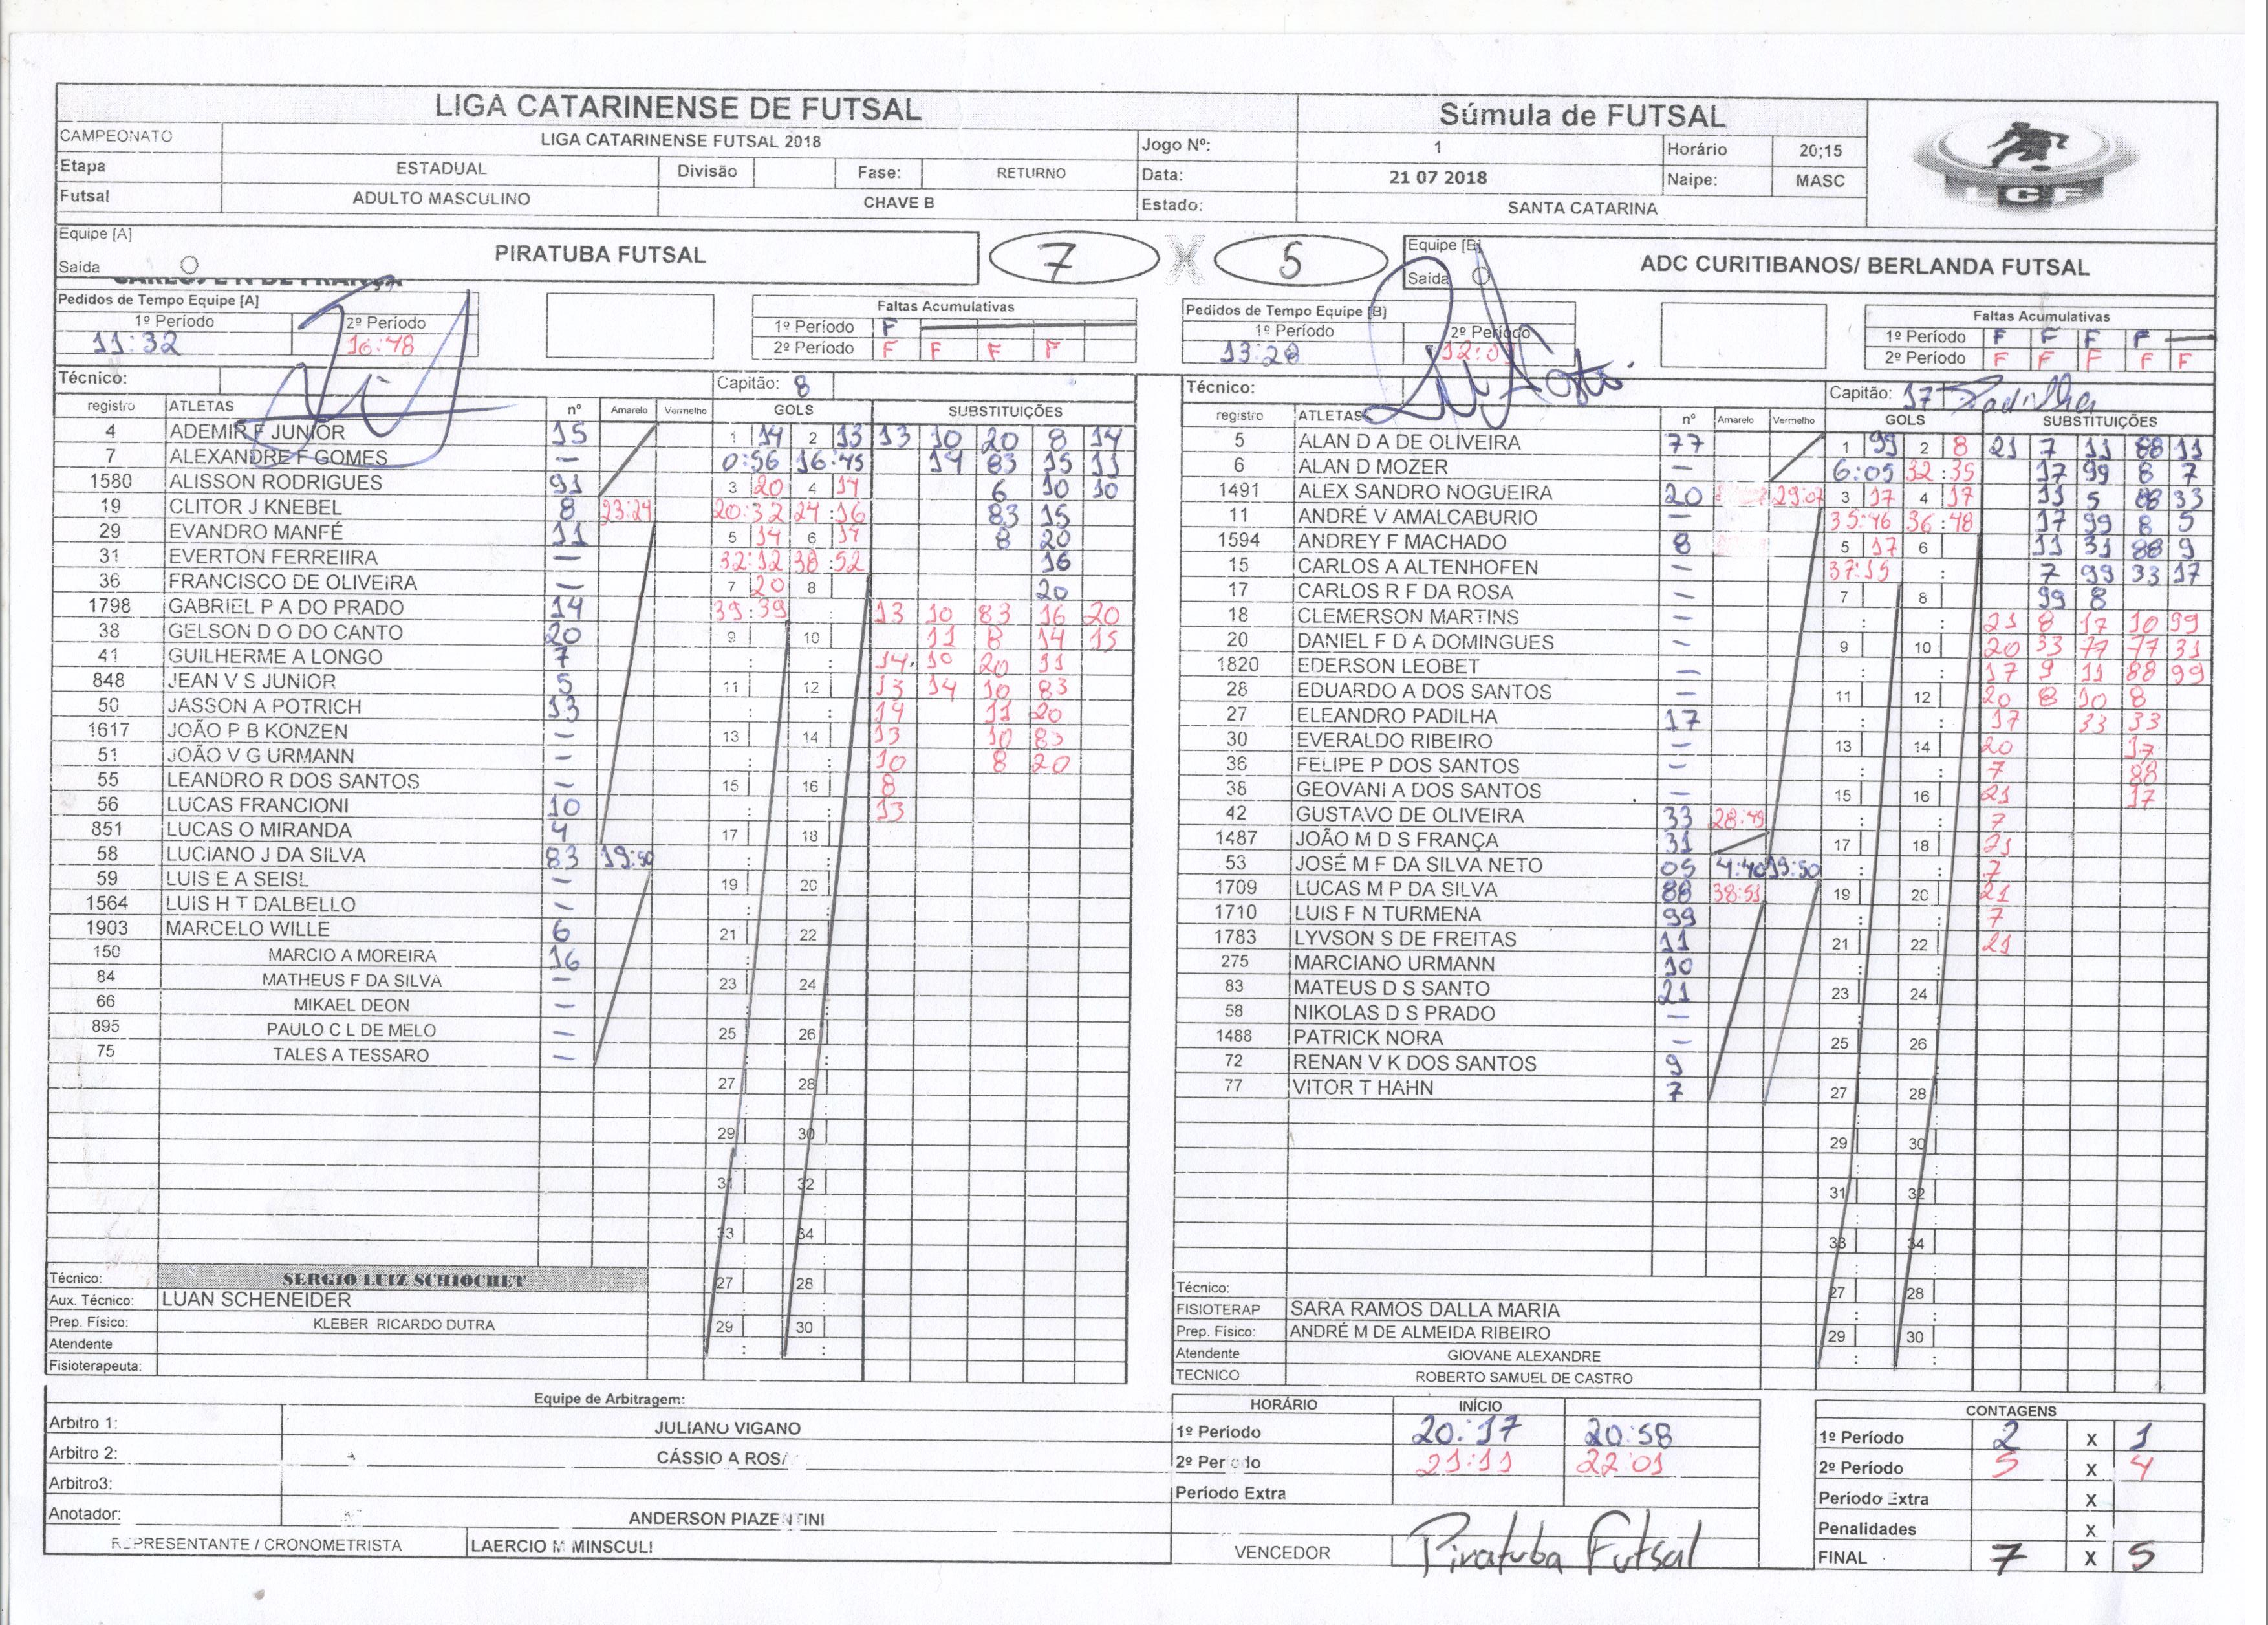 LIGA CATARINENSE DE FUTSAL Súmula de FUTSAL
CAMPEONATO LIGA CATARINENSE FUTSAL 2018 Jogo Nº: 1 Horário 20;15
Etapa ESTADUAL Divisão Fase: RETURNO Data: 21 07 2018 Naipe: MASC
Futsal ADULTO MASCULINO CHAVE B Estado: SANTA CATARINA
LCF
Equipe [A] PIRATUBA FUTSAL 7 X 5 Equipe [B] ADC CURITIBANOS/ BERLANDA FUTSAL
Saída Saída
Pedidos de Tempo Equipe [A] Faltas Acumulativas Pedidos de Tempo Equipe [B] Faltas Acumulativas
1º Período 2º Período 1º Período F 1º Período 2º Período 1º Período F F F F
11:32 16:48 2º Período F F F F 13:28 2º Período F F F F F
Técnico: Capitão: 8 Técnico: Capitão: 17 Padilha
registro ATLETAS nº Amarelo Vermelho GOLS SUBSTITUIÇÕES
4 ADEMIR F JUNIOR 15 1 14 2 13 13 10 20 8 14
7 ALEXANDRE F GOMES — 0:56 16:45 14 83 15 11
1580 ALISSON RODRIGUES 91 3 20 4 14 6 10 10
19 CLITOR J KNEBEL 8 23:24 20:32 24:16 83 15
29 EVANDRO MANFÉ 11 5 14 6 14 8 20
31 EVERTON FERREIIRA — 32:12 38:52 16
36 FRANCISCO DE OLIVEIRA — 7 20 8 20
1798 GABRIEL P A DO PRADO 14 39:39 13 10 83 16 20
38 GELSON D O DO CANTO 20 9 10 11 8 14 15
41 GUILHERME A LONGO 7 14 10 20 11
848 JEAN V S JUNIOR 5 11 12 13 14 10 83
50 JASSON A POTRICH 13 14 11 20
1617 JOÃO P B KONZEN — 13 14 13 10 83
51 JOÃO V G URMANN — 10 8 20
55 LEANDRO R DOS SANTOS — 15 16 8
56 LUCAS FRANCIONI 10 13
851 LUCAS O MIRANDA 4 17 18
58 LUCIANO J DA SILVA 83 19:50
59 LUIS E A SEISL — 19 20
1564 LUIS H T DALBELLO —
1903 MARCELO WILLE 6 21 22
150 MARCIO A MOREIRA 16
84 MATHEUS F DA SILVA — 23 24
66 MIKAEL DEON —
895 PAULO C L DE MELO — 25 26
75 TALES A TESSARO —
27 28
29 30
31 32
33 34
Técnico: SERGIO LUIZ SCHIOCHET 27 28
Aux. Técnico: LUAN SCHENEIDER
Prep. Físico: KLEBER RICARDO DUTRA 29 30
Atendente
Fisioterapeuta:
registro ATLETAS nº Amarelo Vermelho GOLS SUBSTITUIÇÕES
5 ALAN D A DE OLIVEIRA 77 1 99 2 8 21 7 11 88 11
6 ALAN D MOZER — 6:05 32:35 17 99 8 7
1491 ALEX SANDRO NOGUEIRA 20 29:07 3 17 4 17 11 5 88 33
11 ANDRÉ V AMALCABURIO — 35:46 36:48 17 99 8 5
1594 ANDREY F MACHADO 8 5 17 6 11 31 88 9
15 CARLOS A ALTENHOFEN — 37:15 7 99 33 17
17 CARLOS R F DA ROSA — 7 8 99 8
18 CLEMERSON MARTINS — 21 8 17 10 99
20 DANIEL F D A DOMINGUES — 9 10 20 33 77 77 31
1820 EDERSON LEOBET — 17 9 11 88 99
28 EDUARDO A DOS SANTOS — 11 12 20 8 10 8
27 ELEANDRO PADILHA 17 17 33 33
30 EVERALDO RIBEIRO — 13 14 20 17
36 FELIPE P DOS SANTOS — 7 88
38 GEOVANI A DOS SANTOS — 15 16 21 17
42 GUSTAVO DE OLIVEIRA 33 28:49 7
1487 JOÃO M D S FRANÇA 31 17 18 21
53 JOSÉ M F DA SILVA NETO 05 4:40 19:50 7
1709 LUCAS M P DA SILVA 88 38:51 19 20 21
1710 LUIS F N TURMENA 99 7
1783 LYVSON S DE FREITAS 11 21 22 21
275 MARCIANO URMANN 10
83 MATEUS D S SANTO 21 23 24
58 NIKOLAS D S PRADO —
1488 PATRICK NORA — 25 26
72 RENAN V K DOS SANTOS 9
77 VITOR T HAHN 7 27 28
29 30
31 32
33 34
Técnico: 27 28
FISIOTERAP SARA RAMOS DALLA MARIA
Prep. Físico: ANDRÉ M DE ALMEIDA RIBEIRO 29 30
Atendente GIOVANE ALEXANDRE
TECNICO ROBERTO SAMUEL DE CASTRO
Equipe de Arbitragem:
Arbitro 1: JULIANO VIGANO
Arbitro 2: CÁSSIO A ROSA
Arbitro3:
Anotador: ANDERSON PIAZENTINI
REPRESENTANTE / CRONOMETRISTA LAERCIO M MINSCULI
HORÁRIO INÍCIO
1º Período 20:17 20:58
2º Período 21:11 22:01
Período Extra
VENCEDOR Piratuba Futsal
CONTAGENS
1º Período 2 X 1
2º Período 5 X 4
Período Extra X
Penalidades X
FINAL 7 X 5